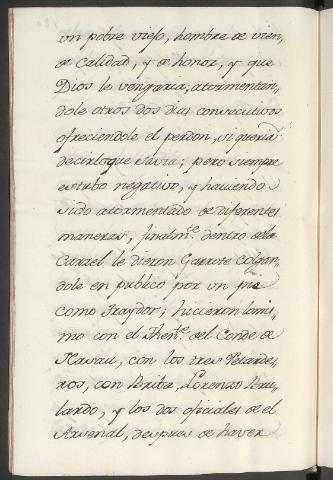 un pobre viejo, hombre de vien,
de calidad, y de honor, y que
Dios le vengaria; atormentan,,
dole otros dos dias consecutivos
ofreciendole el perdon, si queria
decir lo que savia; pero siempre
estubo negativo, y haviendo
sido atormentado de diferentes
maneras, finalmte dentro de la
Carzel le dieron Garrote colgan,,
dole en publico por un pie
como Traydor; hicieron lo mis,,
mo con el Thente del Conde de
Nasau, con los tres Petarde,,
ros, con Briba, Lorenzo Bru,,
lardo, y los dos oficiales de el
Arsenal, despues de haver